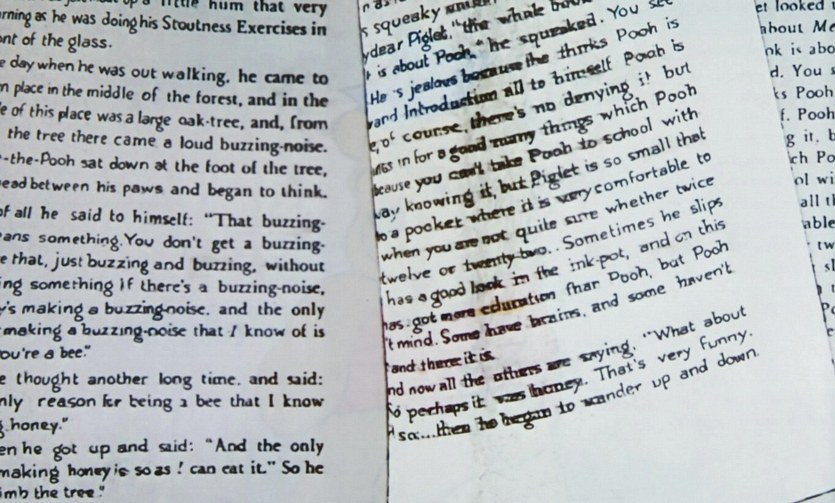 little hum that very
rning as he was doing his Stoutness Exercises in
nt of the glass.
e day when he was out walking, he came to
n place in the middle of the forest, and in the
e of this place was a large oak-tree, and, from
the tree there came a loud buzzing-noise.
-the-Pooh sat down at the foot of the tree,
ead between his paws and began to think.
of all he said to himself: "That buzzing-
ans something. You don't get a buzzing-
e that, just buzzing and buzzing, without
ing something If there's a buzzing-noise,
y's making a buzzing-noise, and the only
making a buzzing-noise that I know of is
ou're a bee."
e thought another long time, and said:
nly reason for being a bee that I know
g honey."
en he got up and said: "And the only
making honey is so as I can eat it." So he
imb the tree."
s squeaky
dear Piglet, "the whole
is about Pooh," he squeaked. You see
He's jealous because he thinks Pooh is
and Introduction all to himself Pooh is
e, of course, there's no denying it but
in for a good many things which Pooh
cause you can't take Pooh to school with
way knowing it, but Piglet is so small that
to a pocket where it is very comfortable to
when you are not quite sure whether twice
twelve or twenty-two. . Sometimes he slips
has a good look in the ink-pot, and on this
has got more education than Pooh, but Pooh
't mind. Some have brains, and some haven't
and there it is.
nd now all the others are saying, "What about
So perhaps it was honey. That's very funny.
so...then he began to wander up and down.
et looked
about
nk is abo
d. You s
ks Pooh
f. Pooh
g it, b
ch Po
ol wi
all t
able
tw
sl